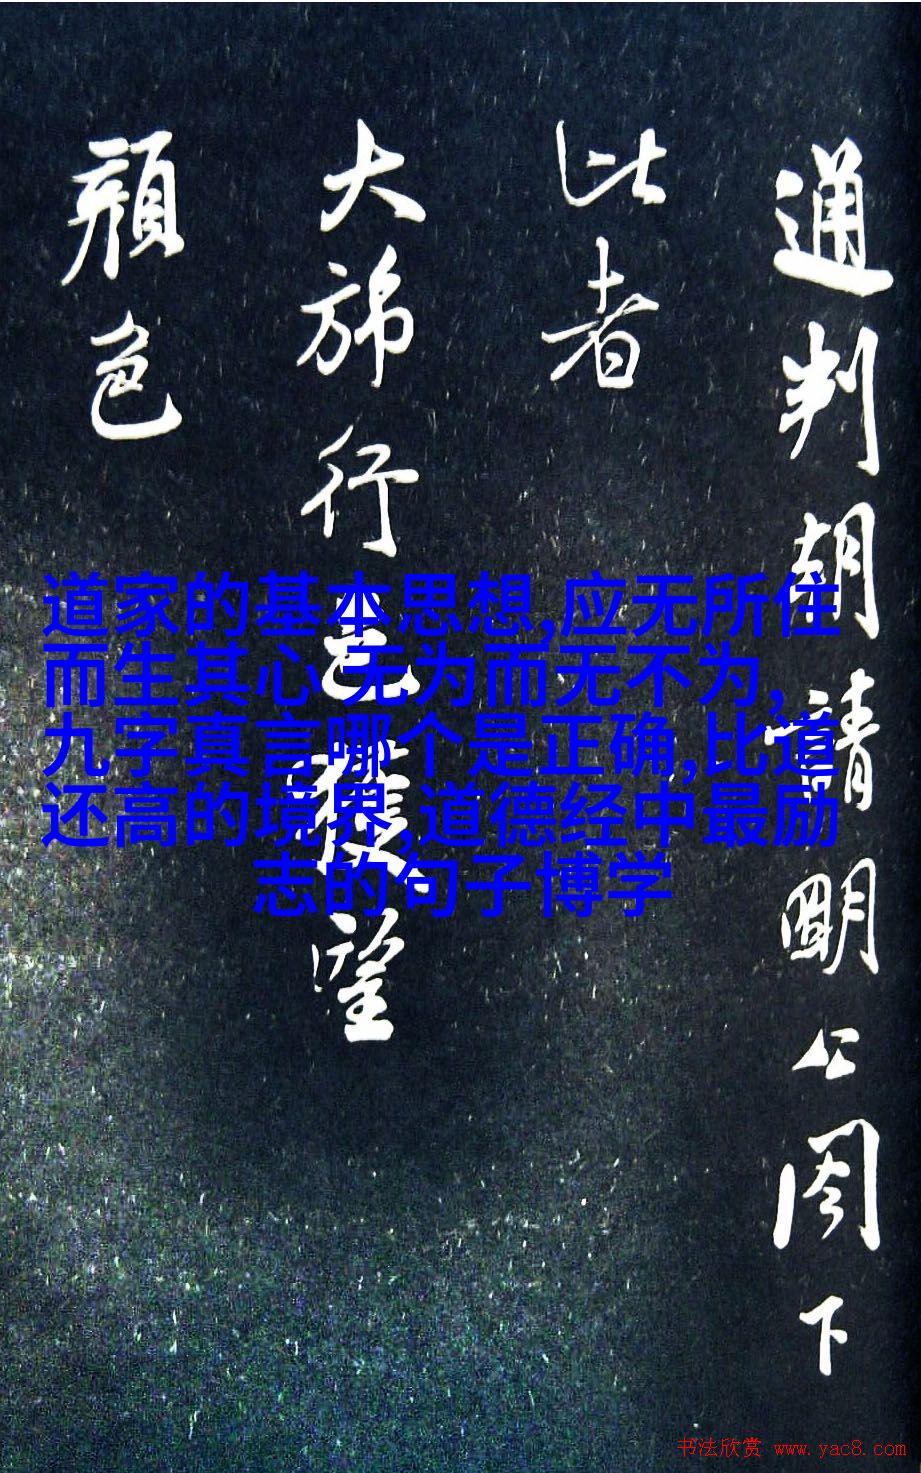 通判朝請明公閣下
此者
大旆行邑獲望
顏色
道家的基本思想,应无所住
而生其心 无为而无不为,
九字真言哪个是正确,比道
还高的境界,道德经中最励
志的句子博学
书法欣赏 www.yac8.com